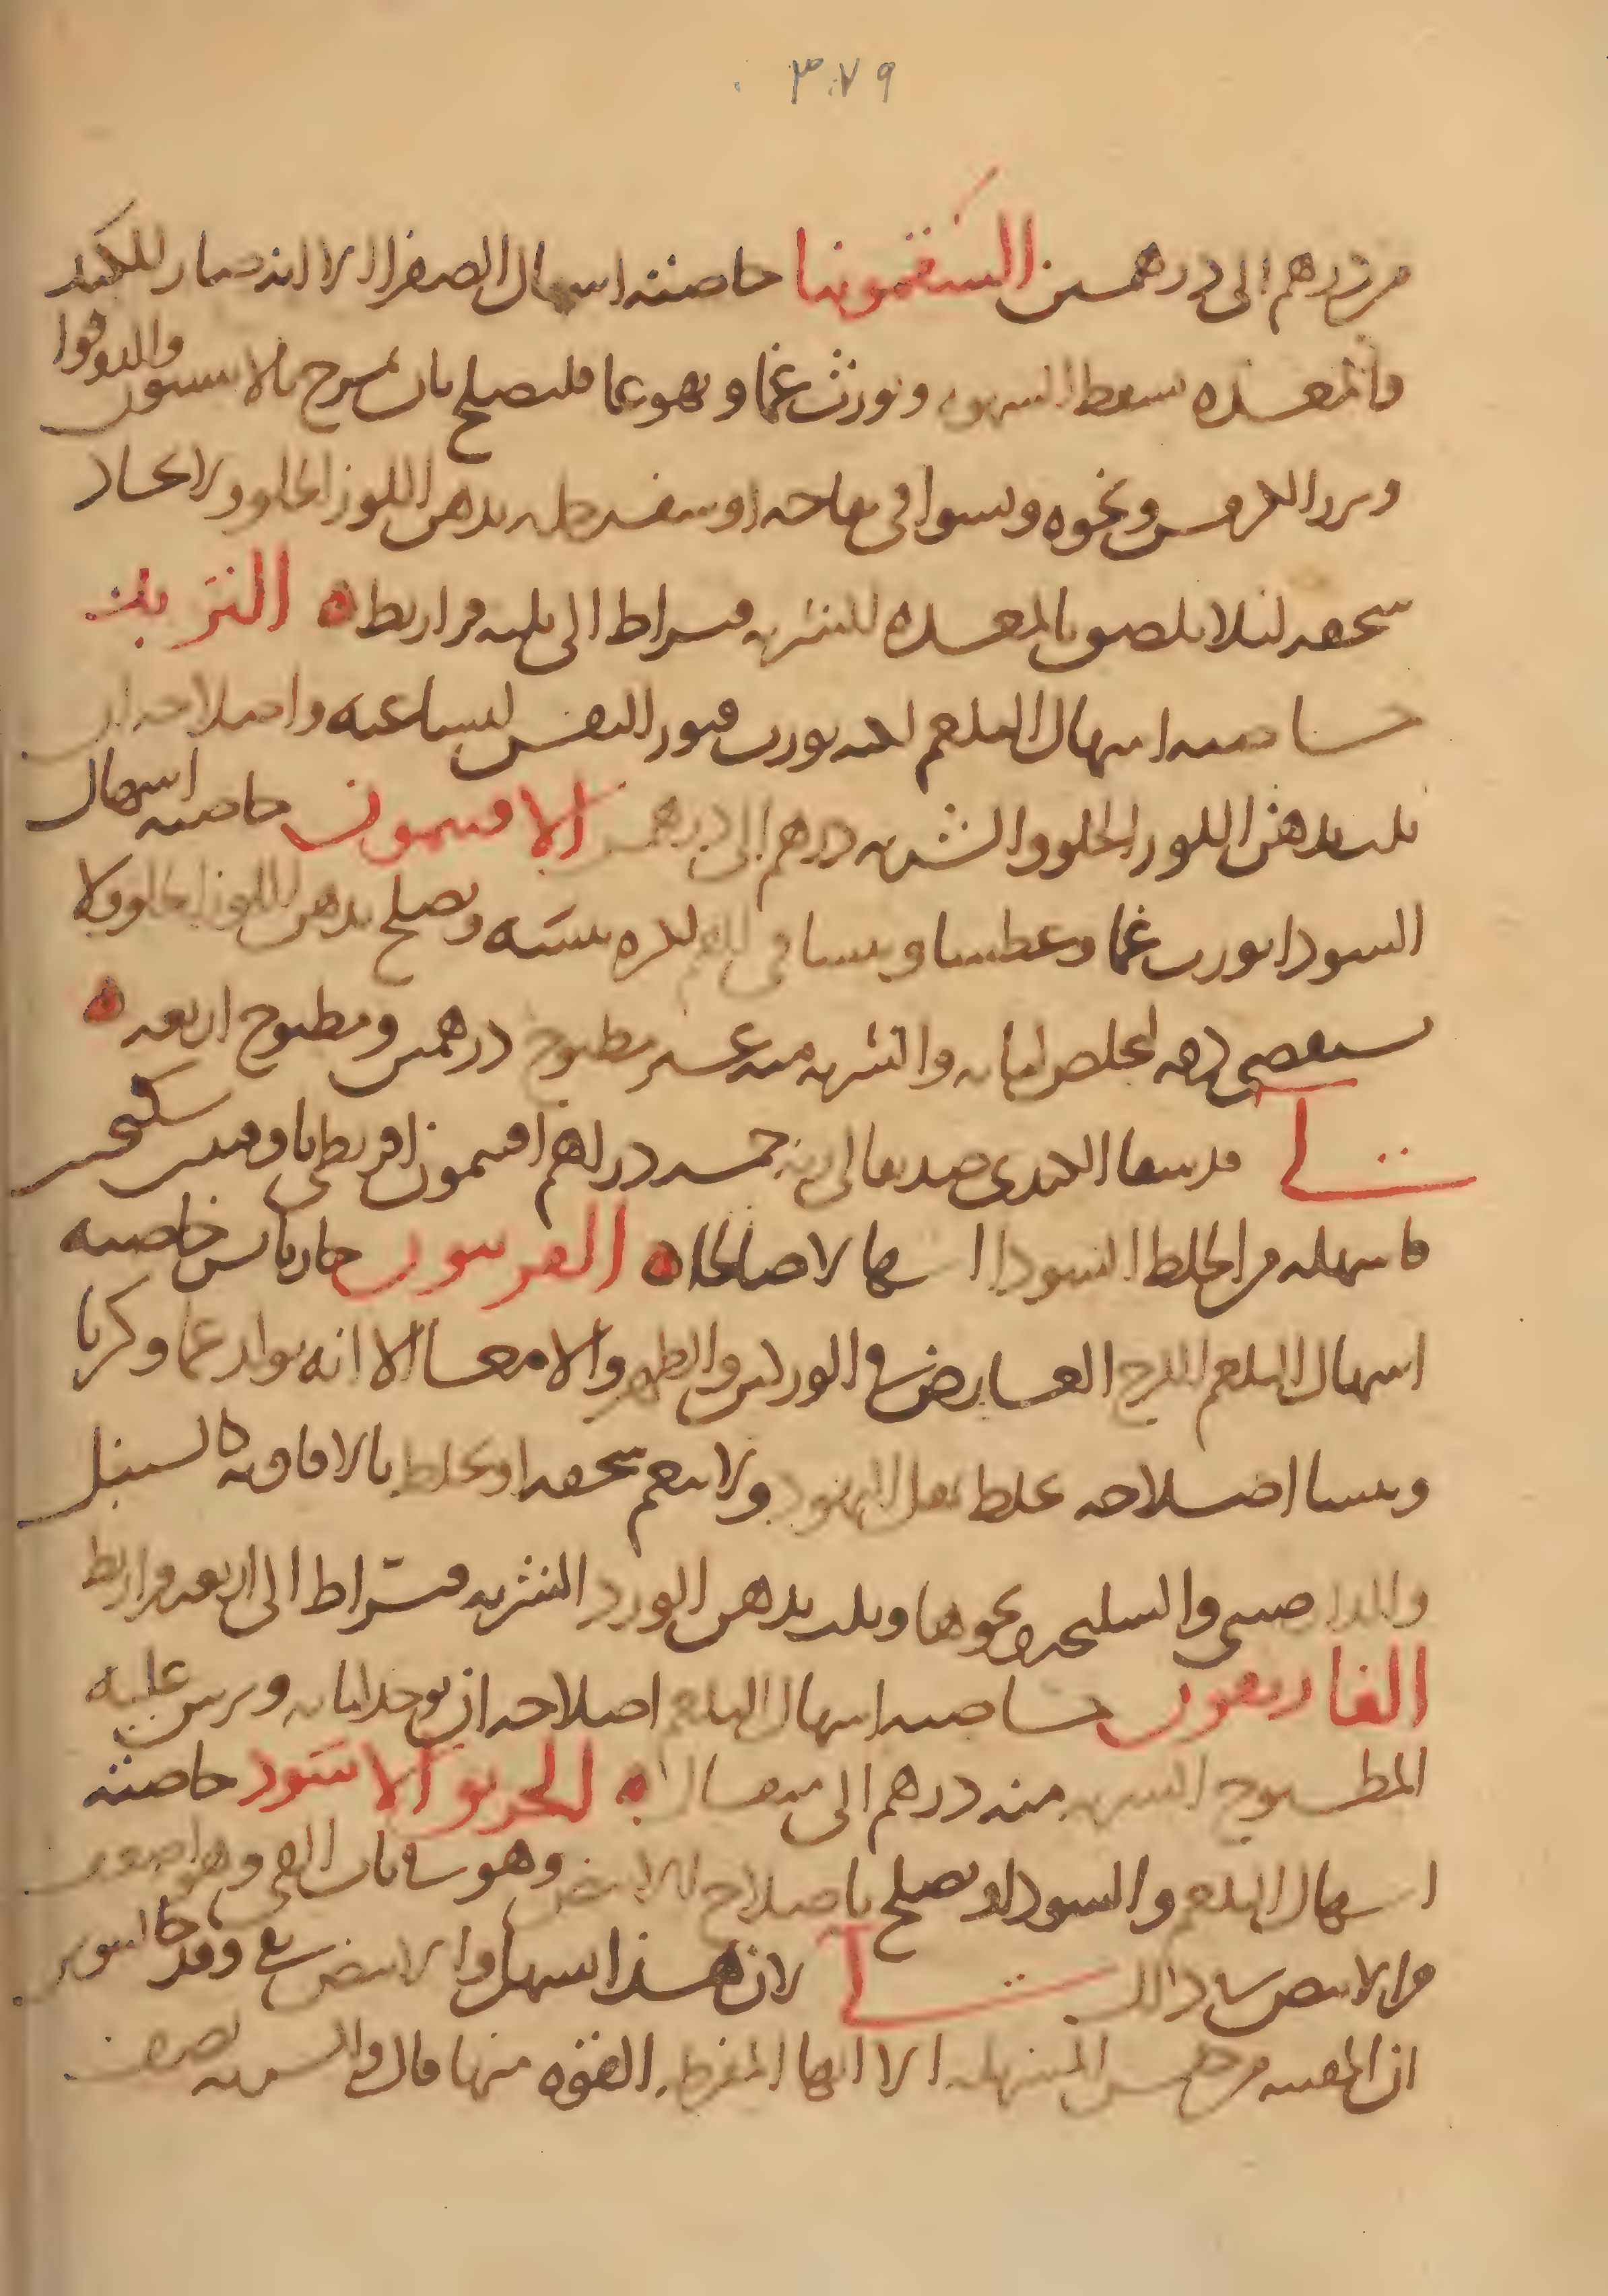 ٣٧٩
من درهم الى درهمين السقمونيا خاصيته اسهال الصفرا الا انه ضار للكبد
والمعده يسقط الشهوه ويورث غما وتهوعا فليصلح بان يمزج بالانيسون والدوقوا
وبزر الكرفس ونحوه ويشوا في تفاحه او سفرجله بدهن اللوز الحلو ولا يحاد
سحقه لئلا يلصق بالمعده الشربه قيراط الى ثلثه قراريط التربد
خاصيته اسهال البلغم لكنه يورث النفس لبشاعته واصلاحه ان
يلت بدهن اللوز الحلو والشربه درهم الى درهمين الافتيمون خاصيته اسهال
السودا يورث غما وعطشا ويبسا في الفم لكثره يبسه ويصلح بدهن اللوز الحلو ولا
يستقصى دقه لتخلص لبابه والشربه منه غير مطبوخ درهمين ومطبوخ اربعه
لي قد سقا الكندى صديقا لى وزن خمسه دراهم افتيمون اقريطى باوقيتين سكنجبين
فاسهله من الخلط السودا اسهالا صالحا الفربيون حار يابس خاصيته
اسهال البلغم اللزج العارض في الوركين والظهر والامعا الا انه يولد غما وكربا
ويبسا اصلاحه خلط مقل اليهود ولا ينعم سحقه او يخلط بالافاويه كالسنبل
والدارصينى والسليخه ونحوها ويلت بدهن الورد الشربه قيراط الى اربعه قراريط
الغاريقون خاصيته اسهال البلغم اصلاحه ان يوخذ لبابه ويرش عليه
المطبوخ الشربه منه درهم الى مثقال الخربق الاسود خاصيته
اسهال البلغم والسودا ويصلح باصلاح الابيض وهو في باب القى وهو اضعف
من الابيض في ذلك لي لان هذا يسهل والابيض يقى وقد
ان المقيه من جنس المسهله الا انها المفرطه القوه منها قال والشربه نصف